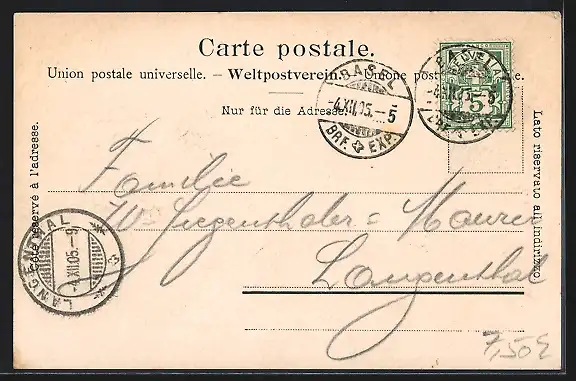 Carte postale.
Union postale universelle. – Weltpostverein. – Unione postale
Nur für die Adresse.
BASEL
-4.XII.05.–5
BRF. EXP.
-4.XII.05.–
BRF. EXP.
5
Côté réservé à l'adresse.
Lato riservato all'indirizzo
Familie
W. Siegenthaler = Maurer
Langenthal
LANGENTHAL
-4.XII.05.–9
7,50€